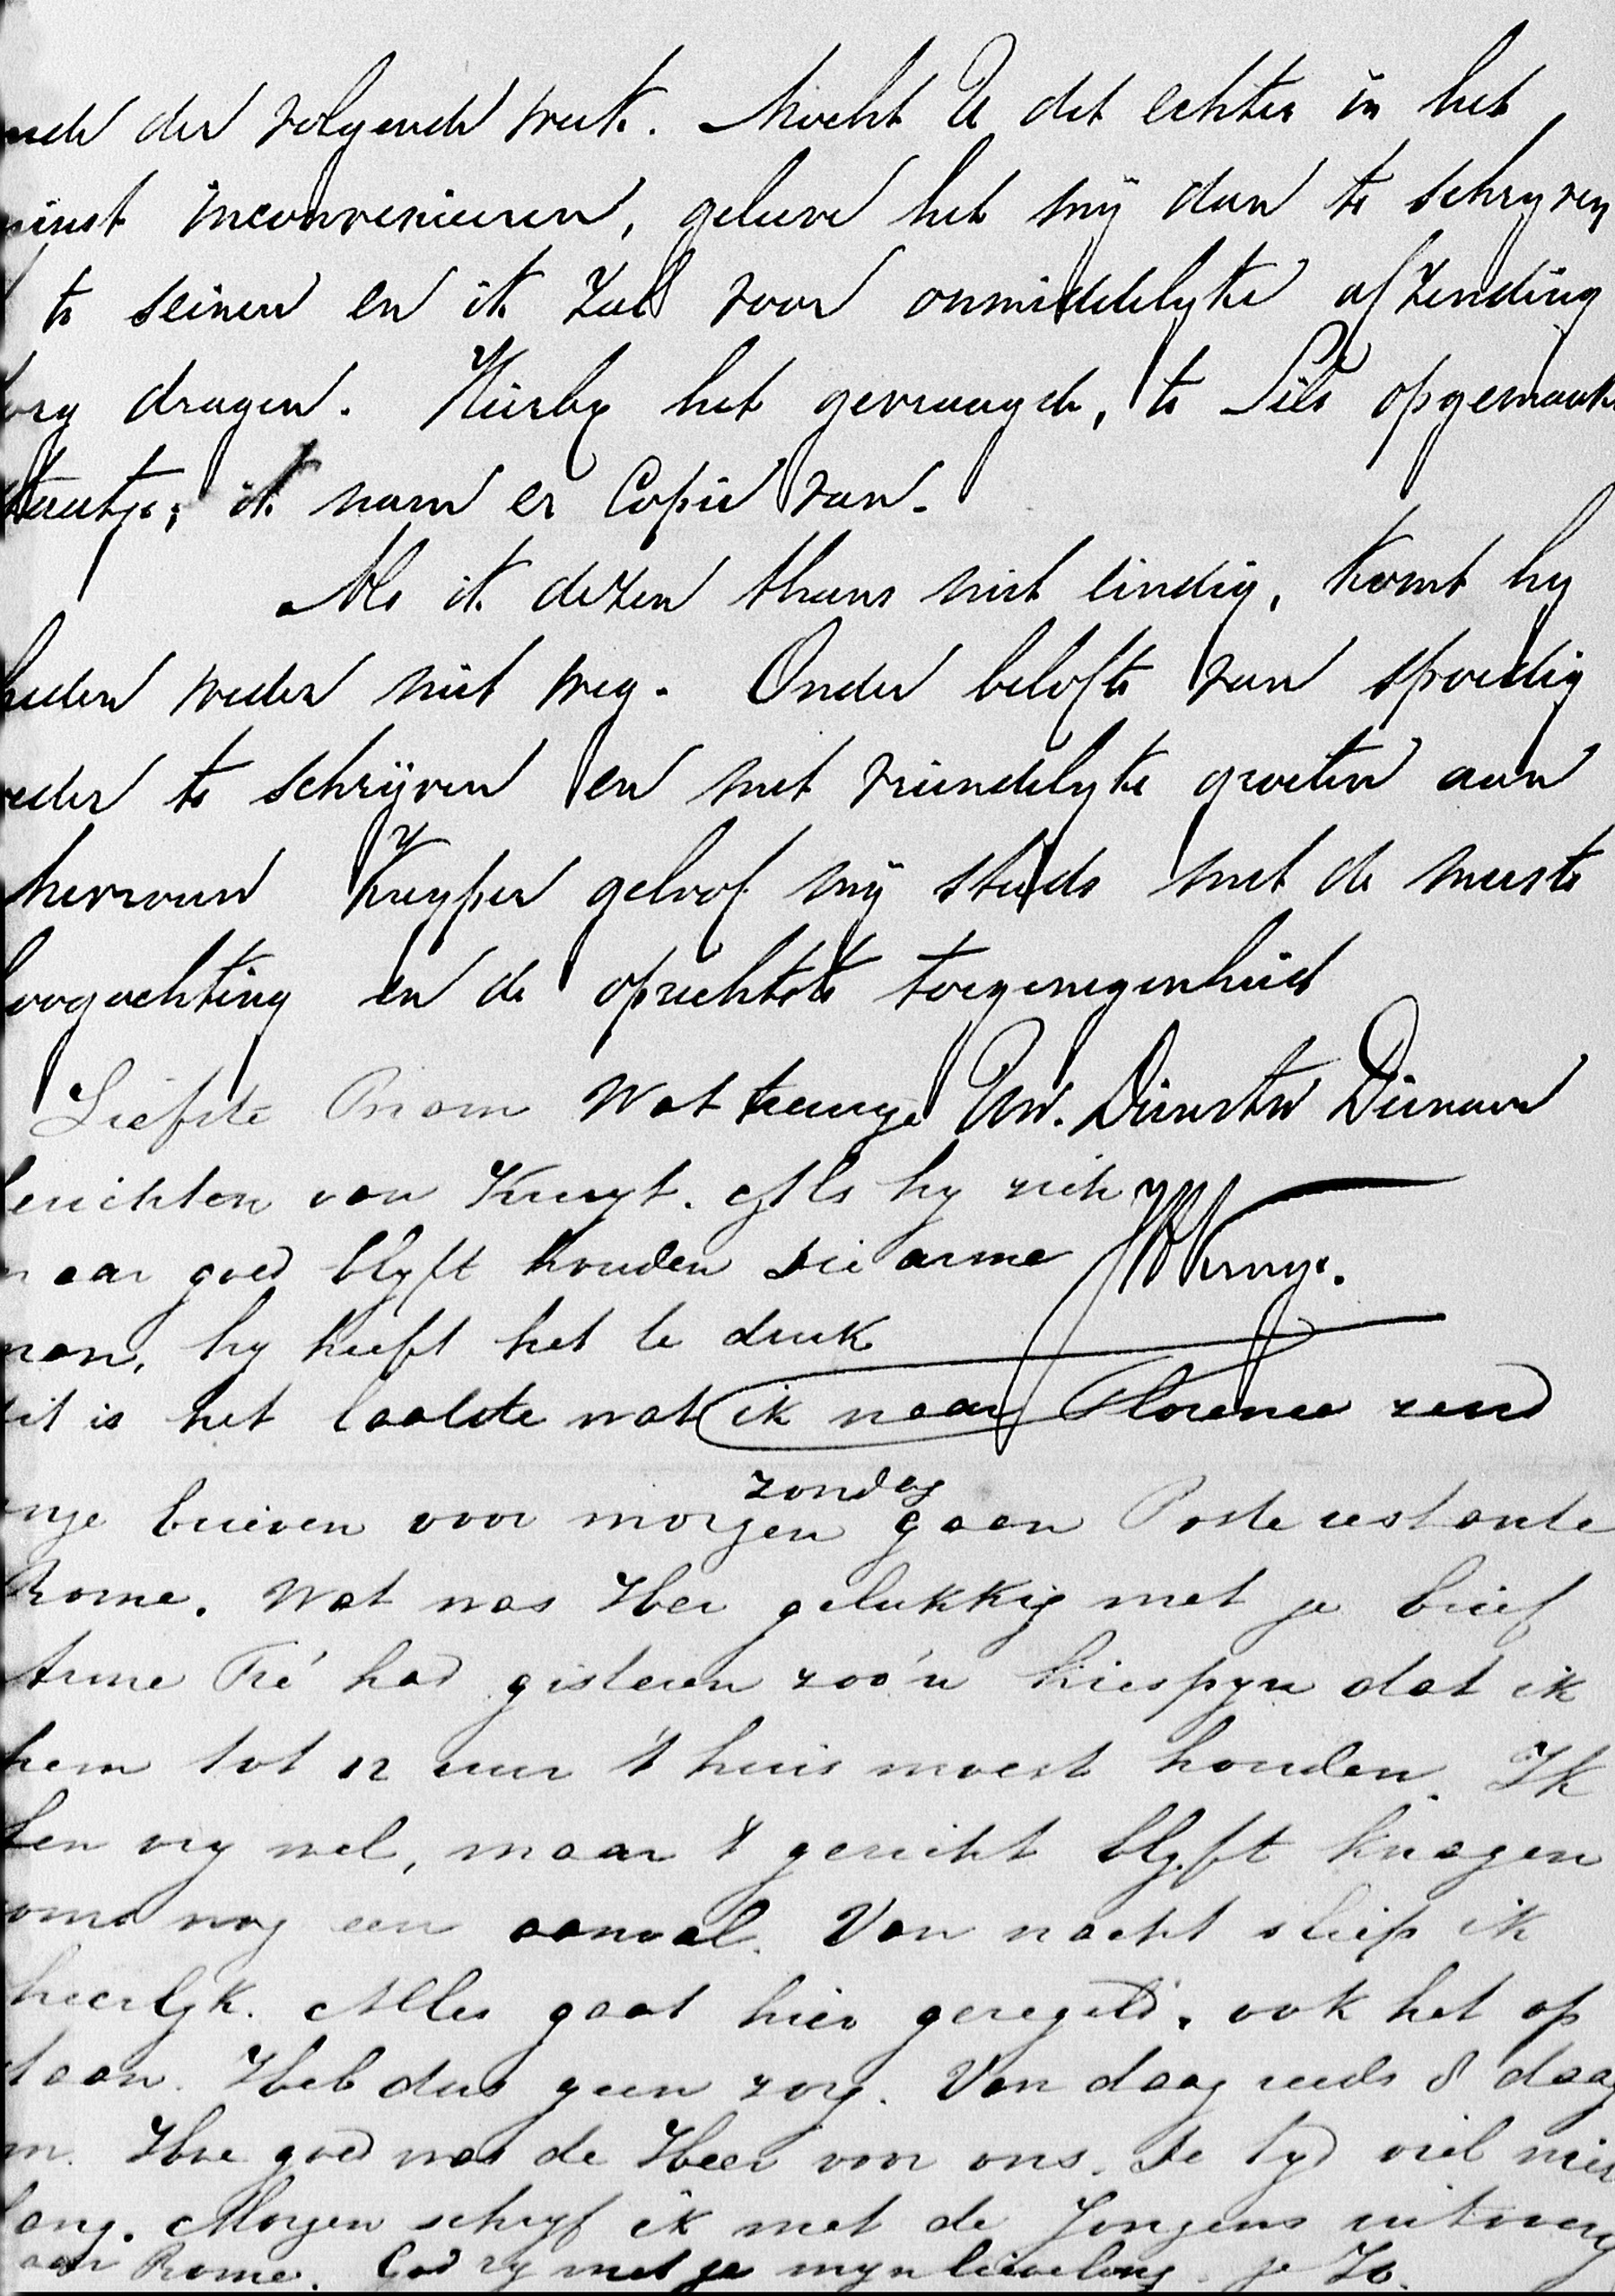 der volgende week. Mocht U dit echter in het
minst inconvenieeren, gelieve het mij dan te schryven
te seinen en ik zal voor onmiddelyke afzending
zorg dragen. Hierby het gevraagde, te Sils opgemaakte
staatje; ik nam er Copie van.
Als ik dezen thans niet eindig, komt hy
heden weder niet weg. Onder belofte van spoedig
weder te schrijven en met vriendelyke groeten aan
Mevrouw Kuyper geloof mij steeds met de meeste
hoogachting en de oprechtste toegenegenheid
Uw. Dienstw Dienaar
Liefste Bram Wat treurige
berichten van Kruyt. Als hy zich
maar goed blyft houden die arme
man, hy heeft het te druk
dit is het laatste wat ik naar Florence zend
zondag
brieven voor morgen gaan Poste restante
Rome. Wat was Her gelukkig met je brief
Arme Fré had gisteren zoo'n kiespyn dat ik
hem tot 12 uur 't huis moest houden. Ik
ben vry wel, maar 't gezicht blyft knagen
nog een aanval. Van nacht sliep ik
heerlyk. Alles gaat hier geregeld, ook het op
staan. Heb dus geen zorg. Van daag reeds 8 daag
Hoe goed was de Heer voor ons. De tyd viel nie
lang. Morgen schryf ik met de Jongens uitvoerig
naar Rome. God zy met je myn lieveling. je Jo.